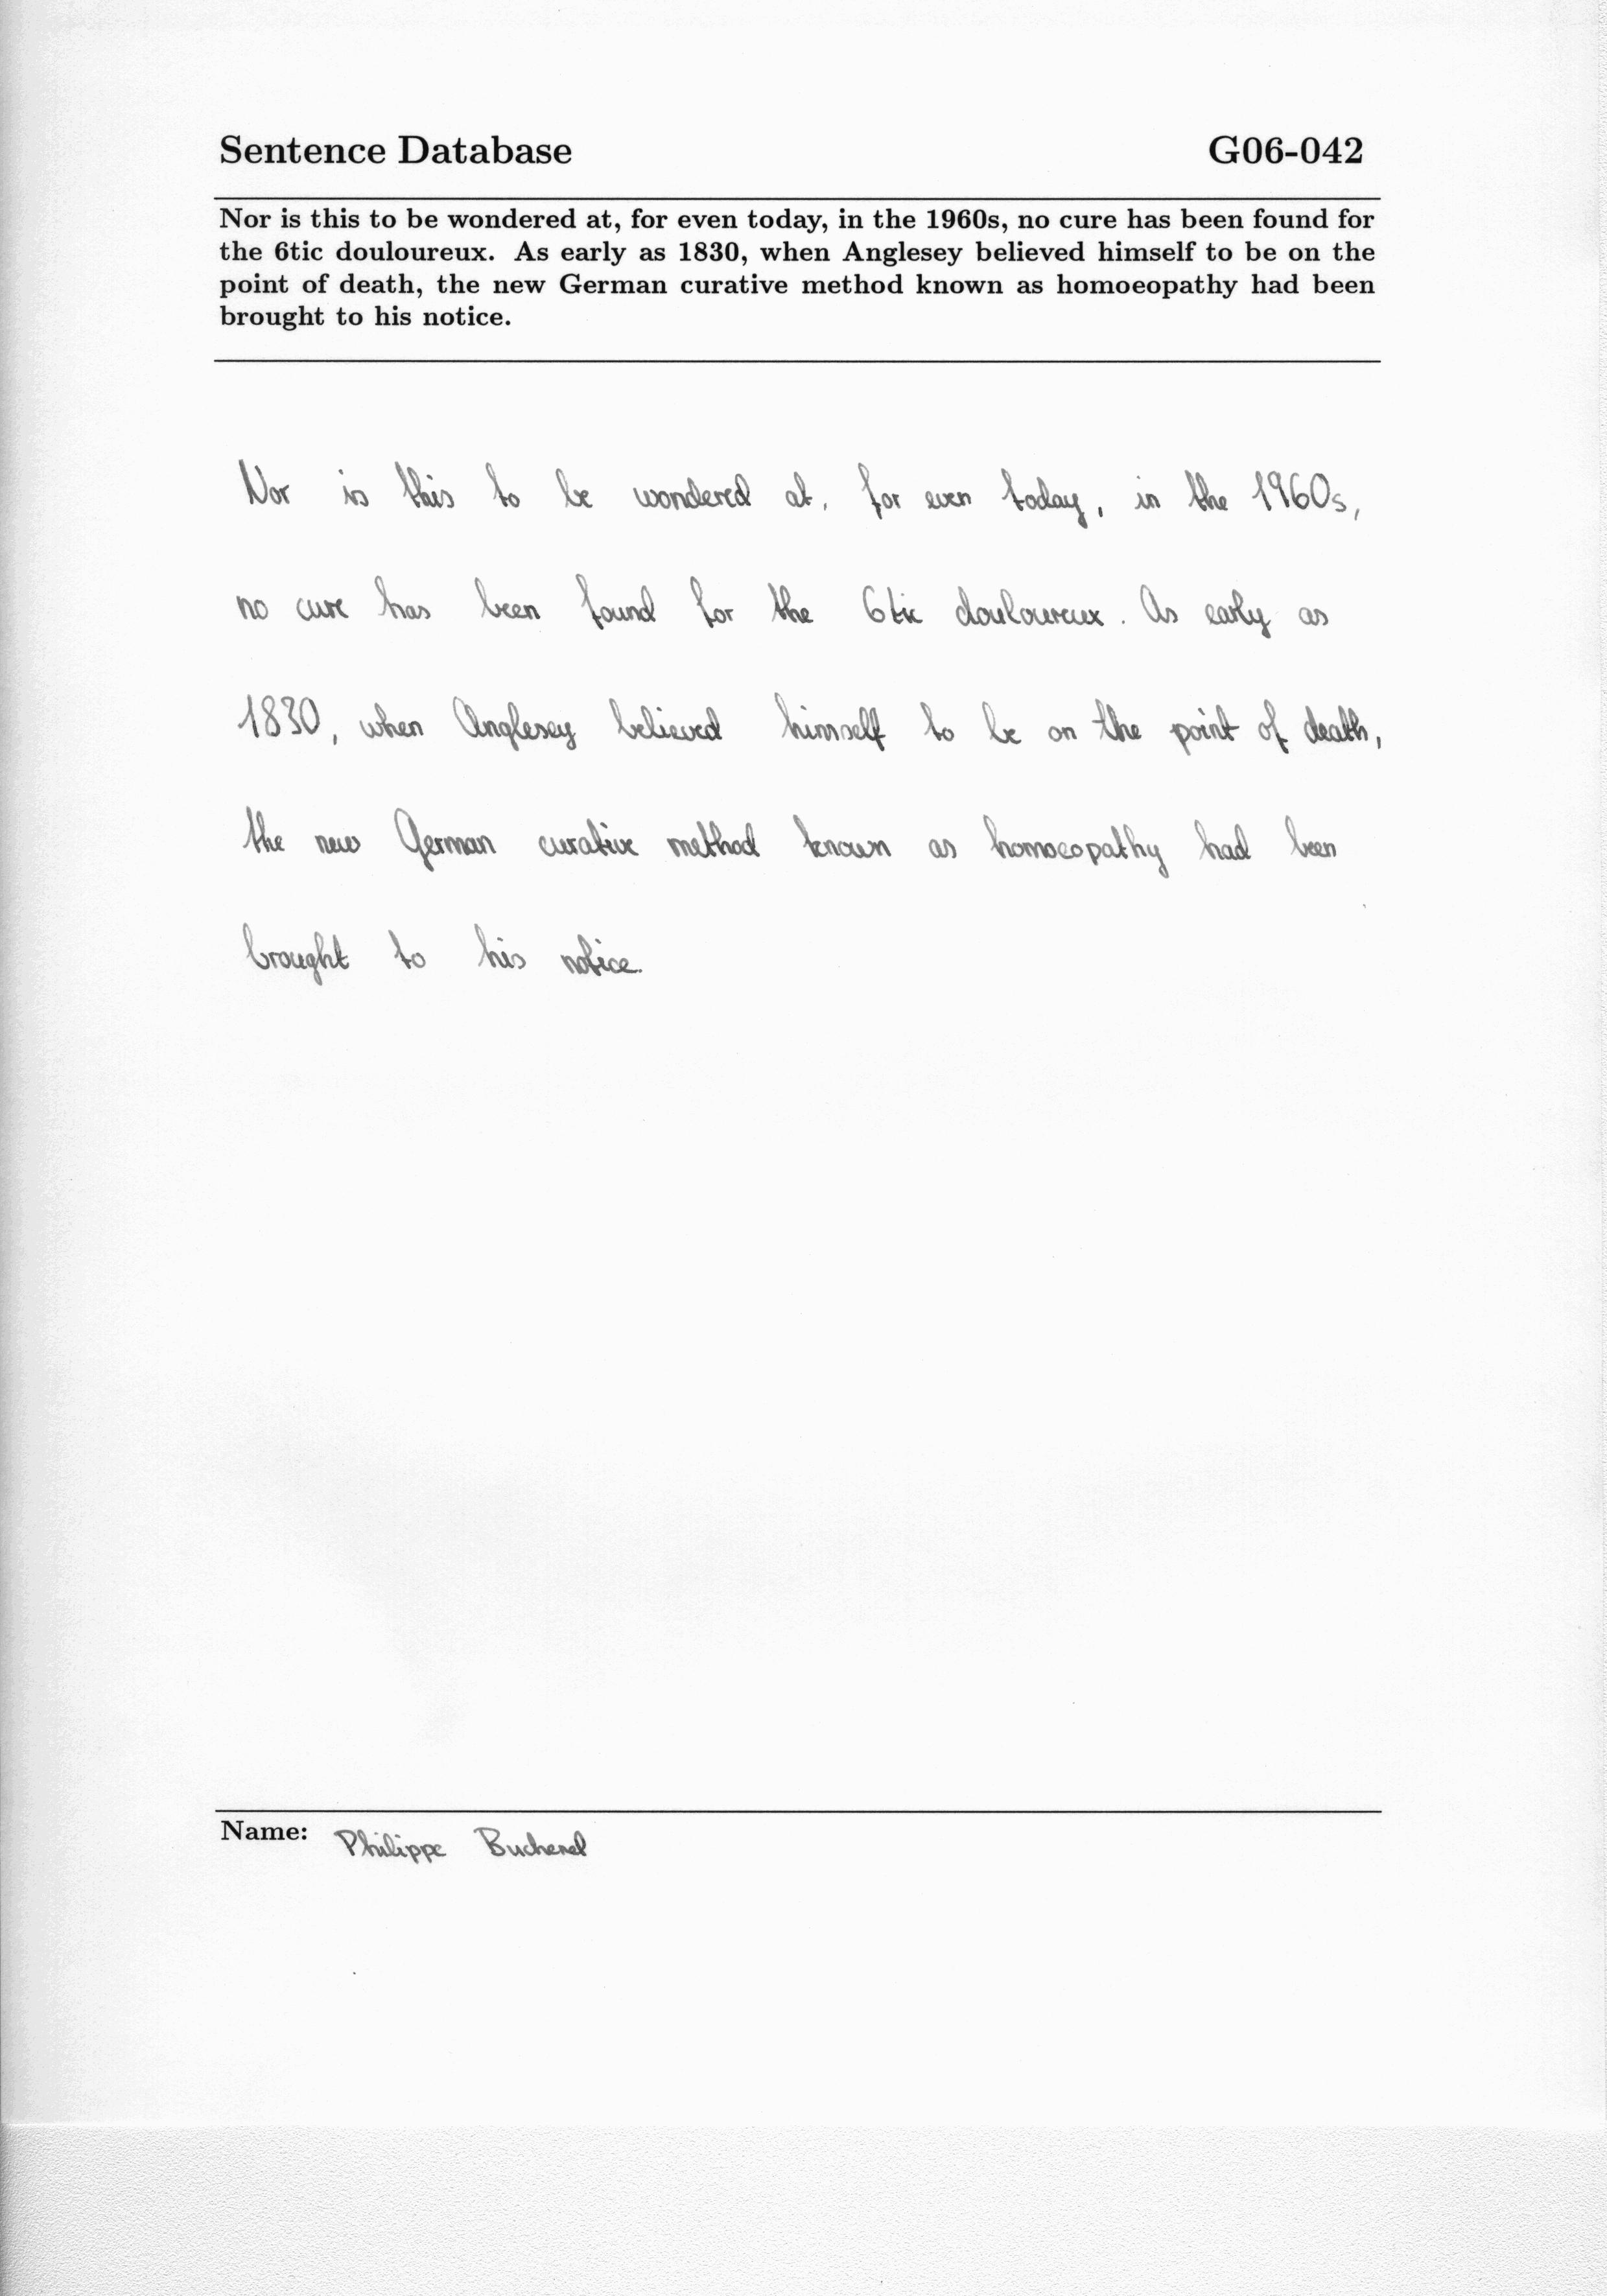 Sentence Database G06-042
Nor is this to be wondered at, for even today, in the 1960s, no cure has been found for
the 6tic douloureux. As early as 1830, when Anglesey believed himself to be on the
point of death, the new German curative method known as homoeopathy had been
brought to his notice.
Nor is this to be wondered at, for even today, in the 1960s,
no cure has been found for the 6tic douloureux. As early as
1830, when Anglesey believed himself to be on the point of death,
the new German curative method known as homoeopathy had been
brought to his notice.
Name: Philippe